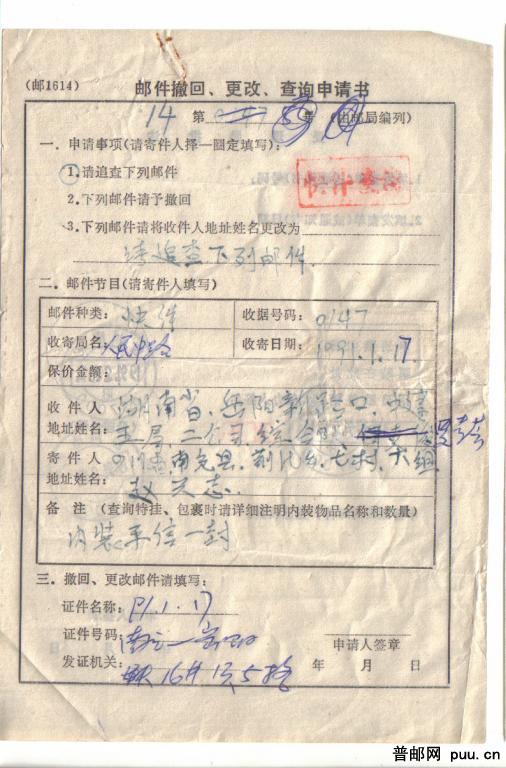 (邮1614)
邮件撤回、更改、查询申请书
14 第 号 (由邮局编列)
一．申请事项(请寄件人择一圈定填写)：
1.请追查下列邮件
快件查询
2.下列邮件请予撤回
3.下列邮件请将收件人地址姓名更改为
请追查下列邮件.
二．邮件节目(请寄件人填写)
邮件种类： 快件 收据号码： 0147
收寄局名： 人民中路 收寄日期： 1991.1.17
保价金额：
收件人 湖南省.岳阳新路口.
地址姓名： 二公司
寄件人 四川省南充县. 乡.七村.六组
地址姓名： 赵天志.
备 注 (查询特挂、包裹时请详细注明内装物品名称和数量)
内装平信一封
三．撤回、更改邮件请填写：
证件名称： 91.1.17
证件号码： 南充—岳阳 申请人签章
发证机关： 16# 5 年 月 日
普邮网 puu.cn